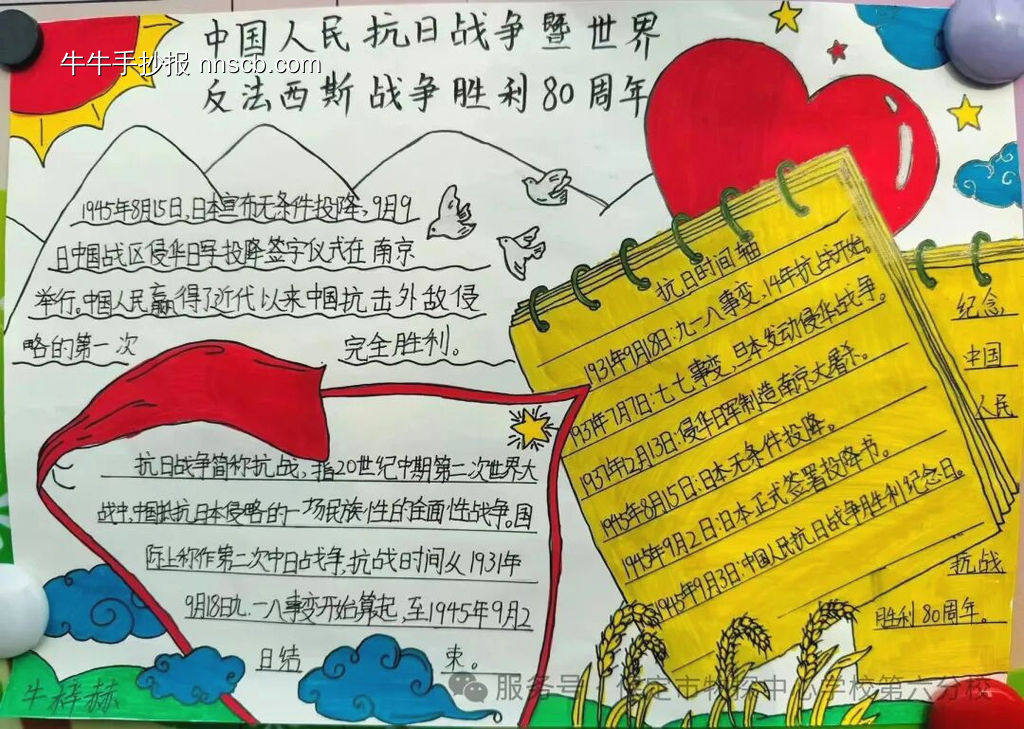 中国人民抗日战争暨世界
反法西斯战争胜利80周年
牛牛手抄报 nnscb.com
1945年8月15日,日本宣布无条件投降,9月9
日中国战区侵华日军投降签字仪式在南京
举行。中国人民赢得了近代以来中国抗击外敌侵
略的第一次完全胜利。
抗日时间轴
1931年9月18日:九一八事变,14年抗战开始。
1931年7月7日:七七事变,日本发动侵华战争。
1931年2月13日:侵华日军制造南京大屠杀。
1945年8月15日:日本无条件投降。
1945年9月2日:日本正式签署投降书。
1945年9月3日:中国人民抗日战争胜利纪念日。
纪念
中国
人民
抗战
胜利80周年。
抗日战争简称抗战,指20世纪中期第二次世界大
战中,中国抵抗日本侵略的一场民族性的全面性战争。国
际上称作第二次中日战争,抗战时间从1931年
9月18日九.一八事变开始算起,至1945年9月2
日结束。
牛梓赫
服务号·保定市物探中心学校第六分校